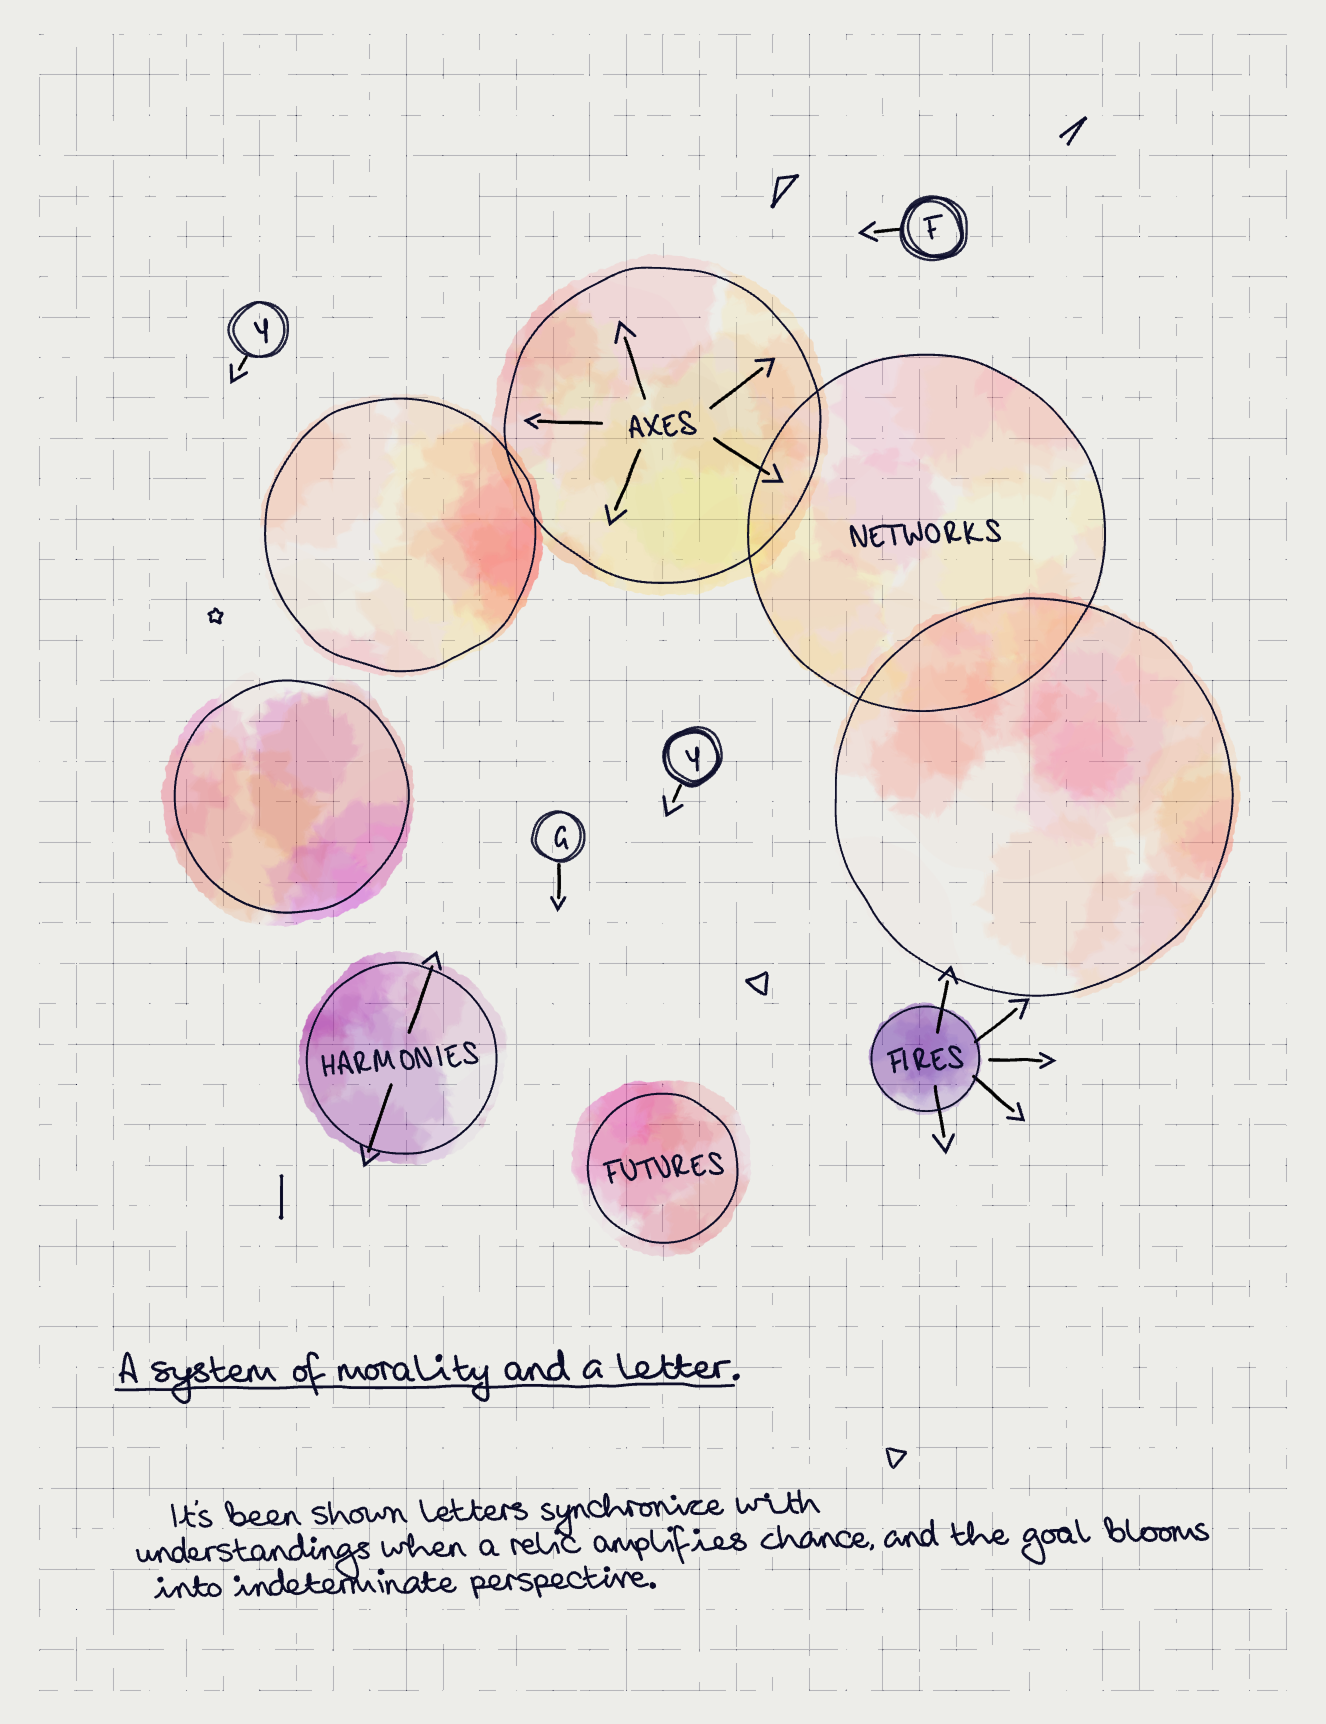 F
Y
AXES
NETWORKS
Y
G
HARMONIES
FIRES
FUTURES
A system of morality and a letter.
It's been shown letters synchronize with
understandings when a relic amplifies chance, and the goal blooms
into indeterminate perspective.